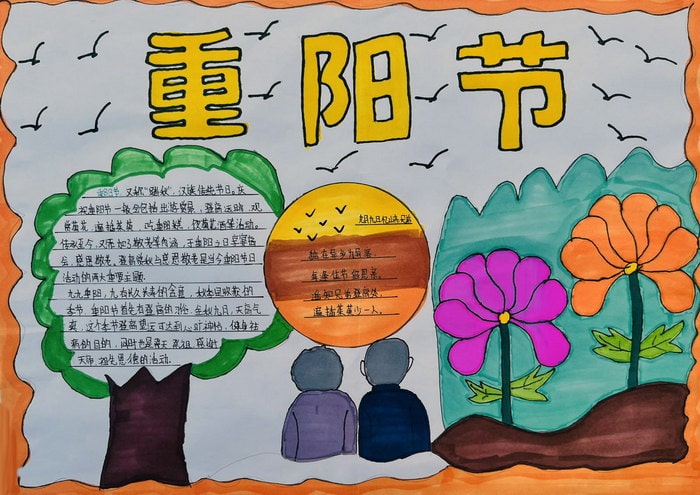 重阳节
重阳节，又称"踏秋"，汉族传统节日。庆
祝重阳节一般会包括出游赏景、登高远眺、观
赏菊花、遍插茱萸、吃重阳糕、饮菊花酒等活动。
传承至今，又添加了敬老等内涵，于重阳之日享宴高
会，感恩敬老。登高赏秋与感恩敬老是当今重阳节日
活动的两大重要主题。
九九重阳，九有长久长寿的含意，秋季是收获的
季节，重阳节首先有登高的习俗，金秋九月，天高气
爽，这个季节登高望远可达到心旷神怡、健身祛
病的目的。同时也是祭天、祭祖、感谢
天帝、祖先恩德的活动。
九月九日忆山东兄弟
独在异乡为异客，
每逢佳节倍思亲。
遥知兄弟登高处，
遍插茱萸少一人。